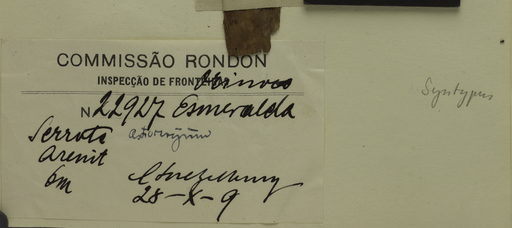 COMMISSÃO RONDON
INSPECÇÃO DE FRONTEIRAS
Nº 22927 Esmeralda
Serrote
Arenit
6m
28-X-9
Syntypus